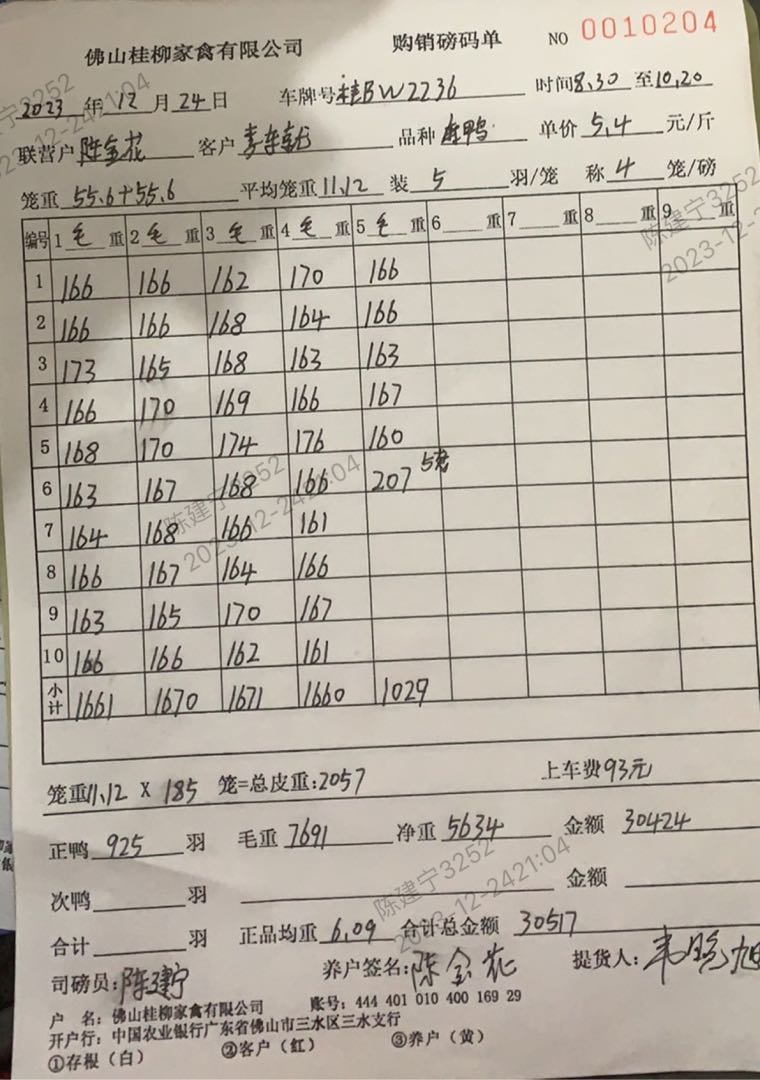 佛山桂柳家禽有限公司 购销磅码单 NO 0010204
2023 年 12 月 24 日 车牌号 桂BW2236 时间 8.30 至 10.20
联营户 陈金花 客户 品种 鸭 单价 5.4 元/斤
笼重 55.6+55.6 平均笼重 11.12 装 5 羽/笼 称 4 笼/磅
编号 1 毛 重 2 毛 重 3 毛 重 4 毛 重 5 毛 重 6 重 7 重 8 重 9 重
1 166 166 162 170 166
2 166 166 168 164 166
3 173 165 168 163 163
4 166 170 169 166 167
5 168 170 174 176 160
6 163 167 168 166 207 5笼
7 164 168 166 161
8 166 167 164 166
9 163 165 170 167
10 166 166 162 161
小计 1661 1670 1671 1660 1029
笼重 11.12 X 185 笼=总皮重: 2057 上车费 93元
正鸭 925 羽 毛重 7691 净重 5634 金额 30424
次鸭 羽 金额
合计 羽 正品均重 6.09 合计总金额 30517
司磅员: 陈建宁 养户签名: 陈金花 提货人: 韦 旭
户 名: 佛山桂柳家禽有限公司 账号: 444 401 010 400 169 29
开户行: 中国农业银行广东省佛山市三水区三水支行
①存根（白） ②客户（红） ③养户（黄）
陈建宁3252
2023-12-2421:04